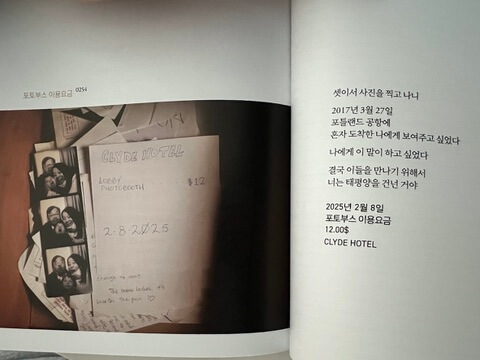 포토부스 이용요금 0254
CLYDE HOTEL
LOBBY
PHOTOBOOTH $12
2-8-2025
셋이서 사진을 찍고 나니
2017년 3월 27일
포틀랜드 공항에
혼자 도착한 나에게 보여주고 싶었다
나에게 이 말이 하고 싶었다
결국 이들을 만나기 위해서
너는 태평양을 건넌 거야
2025년 2월 8일
포토부스 이용요금
12.00$
CLYDE HOTEL